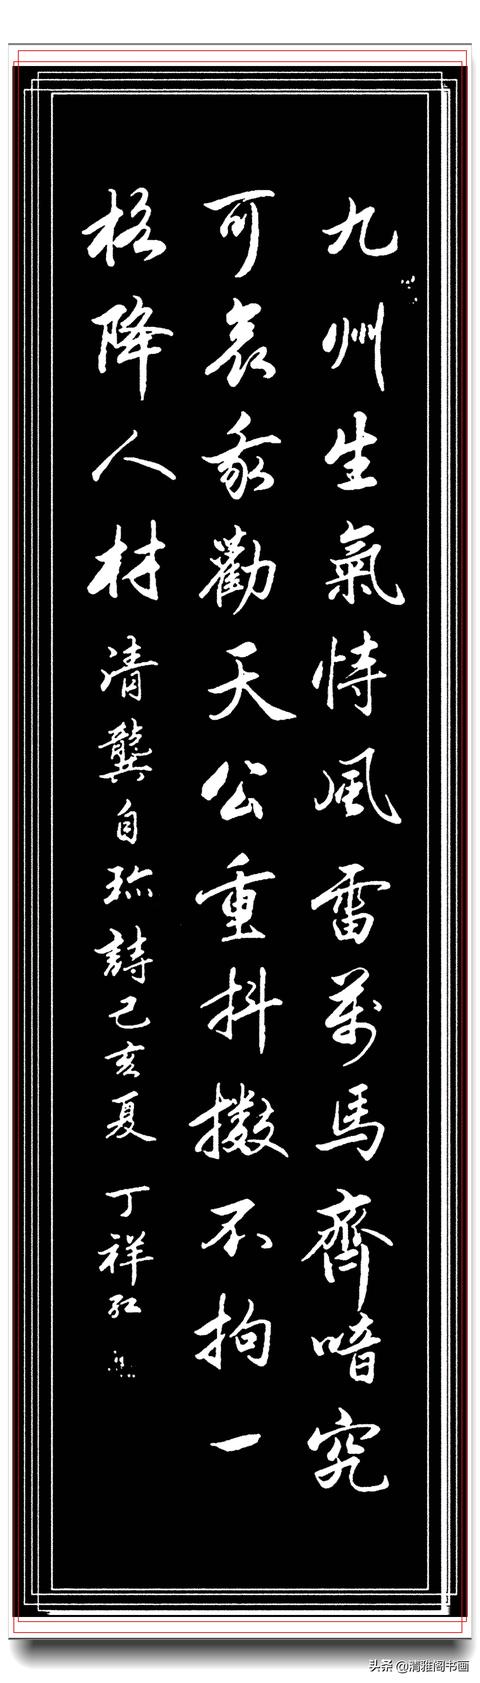 九州生氣恃風雷萬馬齊喑究
可哀我勸天公重抖擻不拘一
格降人材清龔自珍詩己亥夏丁祥紅
头条 @清雅阁书画